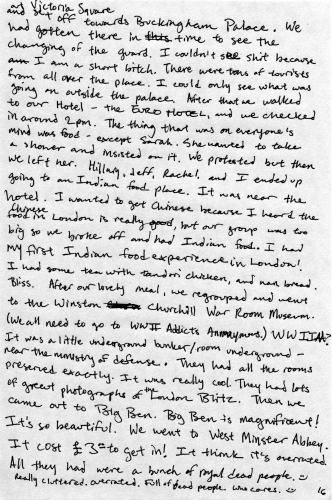 Victoria Square
and set off towards Buckingham Palace. We
had gotten there in this time to see the
changing of the guard. I couldn't see shit because
am I am a short bitch. There were tons of tourists
from all over the place. I could only see what was
going on outside the palace. After that we walked
to our Hotel - the EURO HOTEL, and we checked
in around 2pm. The thing that was on everyone's
mind was food - except Sarah. She wanted to take
a shower and insisted on it. We protested but then
we left her. Hillary, Jeff, Rachel and I ended up
going to an Indian food place. It was near the
hotel. I wanted to get Chinese because I heard the
Chinese
food in London is really good, but our group was too
big so we broke off and had Indian food. I had
my first Indian food experience in London!
I had some tea with tandori chicken, and nan bread.
Bliss. After our lovely meal, we regrouped and went
to the Winston Churchill War Room Museum.
(We all need to go to WWII Addicts Anonymous.) WWIIAA?
It was a little underground bunker/room underground -
near the ministry of defense. They had all the rooms
preserved exactly. It was really cool. They had lots
of great photographs of the London Blitz. Then we
came out to Big Ben. Big Ben is magnificent!
It's so beautiful. We went to West Minster Abbey.
It cost £3.00 to get in! I think it's overrated.
All they had were a bunch of royal dead people.
Really cluttered. overrated. Full of dead people. Who cares.